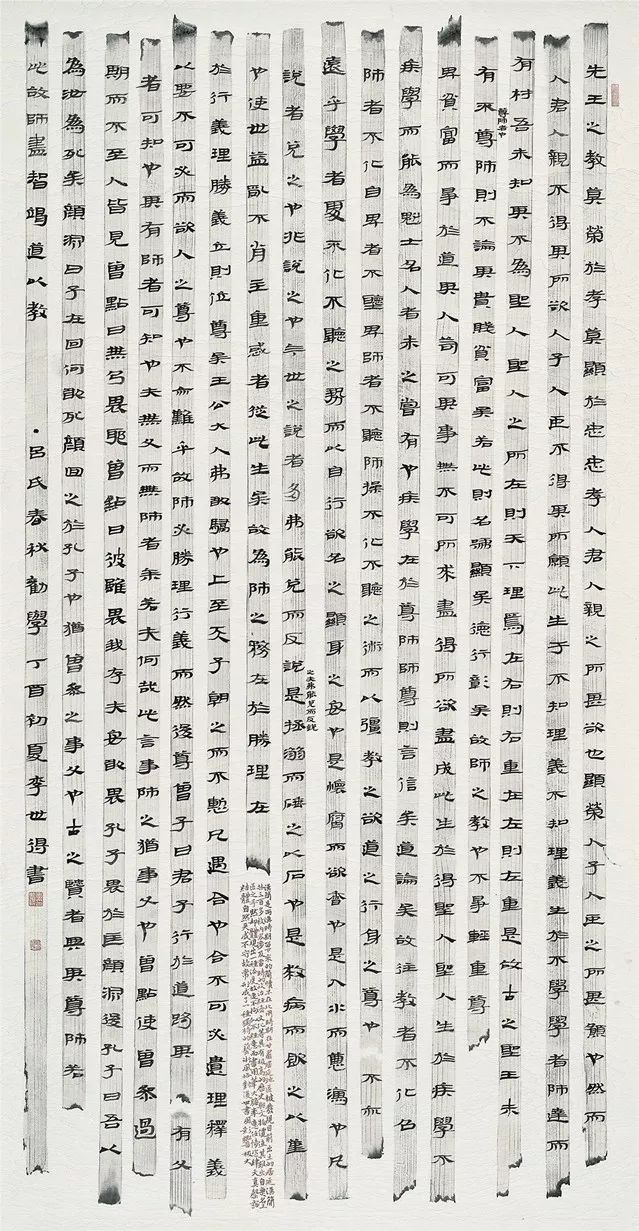 先王之教莫榮於孝莫顯於忠忠孝人君人親之所甚欲也顯榮人子人臣之所甚願也然而
人君人親不得其所欲人子人臣不得其所願此生于不知理義不知理義生於不學學者師達而
有材吾未知其不為聖人聖人之所在則天下理焉在右則右重在左則左重是故古之聖王未
尊師者也
有不尊師則不論其貴賤貧富矣若此則名號顯矣德行彰矣故師之教也不爭輕重尊
卑貧富而爭於道其人苟可其事無不可所求盡得所欲盡成此生於得聖人聖人生於疾學不
疾學而能為魁士名人者未之嘗有也疾學在於尊師師尊則言信矣道論矣故往教者不化召
師者不化自卑者不聽卑師者不聽師操不化不聽之術而以彊教之欲道之行身之尊也不亦
遠乎學者處不化不聽之勢而以自行欲名之顯身之安也是懷腐而欲香也是入水而惡濡也凡
之夫弗能兌而反說
說者兌之也非說之也今世之說者多弗能兌而反說是拯溺而硾之以石也是救病而飲之以堇
也使世益亂不肖主重惑者從此生矣故為師之務在於勝理在
於行義理勝義立則位尊矣王公大人弗敢驕也上至天子朝之而不慙凡遇合也合不可必遺理釋義
以要不可必而欲人之尊也不亦難乎故師必勝理行義而然後尊曾子曰君子行於道路其有父
者可知也其有師者可知也夫無父而無師者余若夫何哉此言事師之猶事父也曾點使曾參過
期而不至人皆見曾點曰無乃畏耶曾點曰彼雖畏我存夫安敢畏孔子畏於匡顏淵後孔子曰吾以
為汝為死矣顏淵曰子在回何敢死顏回之於孔子也猶曾參之事父也古之賢者與其尊師若
此故師盡智竭道以教 •呂氏春秋勸學丁酉初夏李世得書